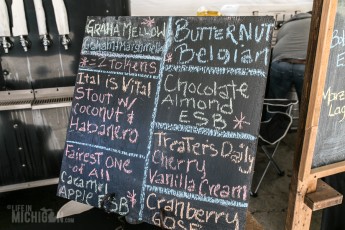 GRAHAMELLOW
* = 2 TOKENS
Ital is Vital
Stout w/
Coconut &
Habanero
Fairest One
of All
Caramel
Apple ESB *
Butternut
Belgian
Chocolate
Almond
ESB *
Treaters Daily
Cherry
Vanilla Cream
Cranberry
GOSE
LIFE IN
MICHIGAN